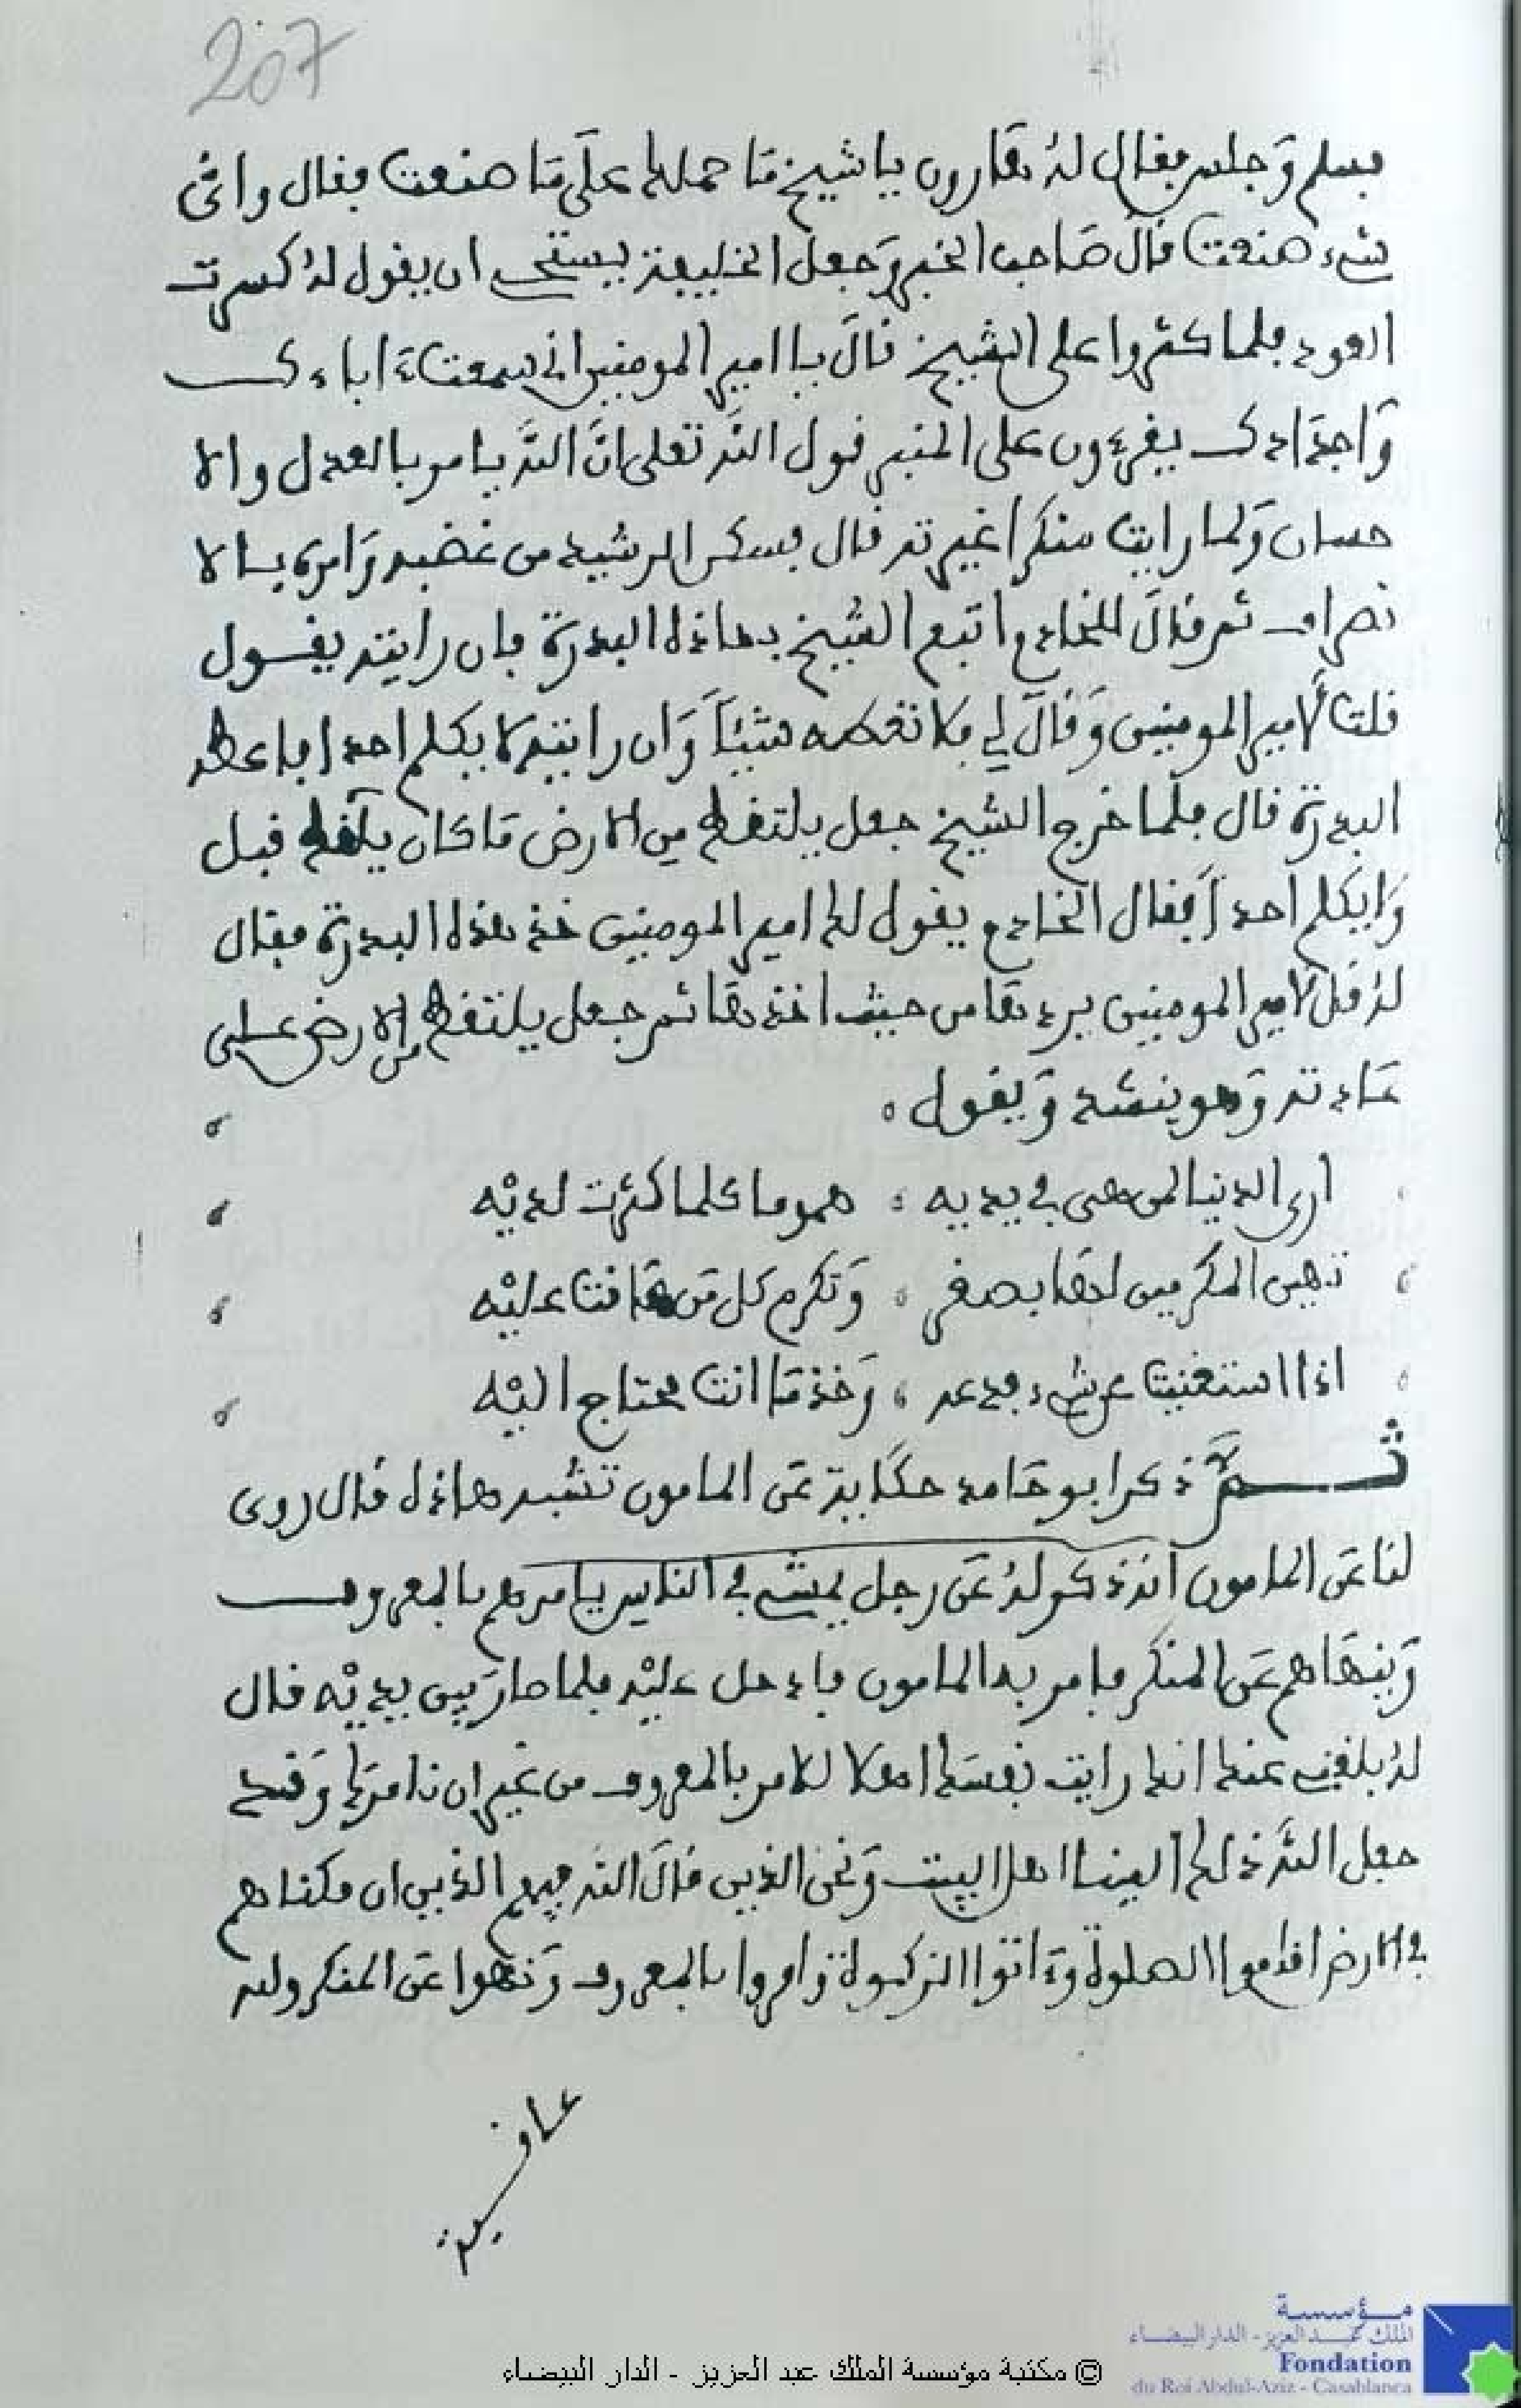 207
فسلم وجلس فقال له هارون يا شيخ ما حملك على ما صنعت فقال واي
شيء صنعت قال صاحب الخبر وجعل الخليفة يستحي ان يقول له كسرت
العود فلما كثروا على الشيخ قال يا امير المومنين اني سمعت ءاباءك
واجدادك يقرءون على المنبر قول الله تعلى ان الله يامر بالعدل والا
حسان ولما رايت منكرا غيرته قال فسكن الرشيد من غضبه وامره بالا
نصراف ثم قال للخادم اتبع الشيخ بهاذه البدرة فان رايته يقول
قلت لامير المومنين وقال لي فلا تعطه شيئا وان رايته لا يكلم احدا فاعطه
البدرة قال فلما خرج الشيخ جعل يلتقط من الارض ما كان يلقط قبل
ولا يكلم احدا فقال الخادم يقول لك امير المومنين خذ هذه البدرة فقال
له قل لامير المومنين يردها من حيث اخذها ثم جعل يلتقط من الارض على
عادته وهو ينشد ويقول
ارى الدنيا لمن هي في يديه هموما كلما كثرت لديه
تهين المكرمين لها بصغر وتكرم كل من هانت عليه
اذا استغنيت عن شيء فدعه وخذ ما انت محتاج اليه
ثم ذكر ابو حامد حكاية عن المامون تشبه هاذه قال روي
لنا عن المامون انه ذكر له عن رجل يمشي في الناس يامرهم بالمعروف
وينهاهم عن المنكر فامر به المامون فادخل عليه فلما صار بين يديه قال
له بلغني عنك انك رايت نفسك اهلا للامر بالمعروف من غير ان نامرك وقد
جعل الله ذلك الينا اهل البيت ونحن الذين قال الله فيهم الذين ان مكناهم
في الارض اقاموا الصلوة وءاتوا الزكوة وامروا بالمعروف ونهوا عن المنكر ولله
عاقبة
مؤسسة
الملك عبد العزيز - الدار البيضاء
Fondation
du Roi Abdul-Aziz - Casablanca
© مكتبة مؤسسة الملك عبد العزيز - الدار البيضاء